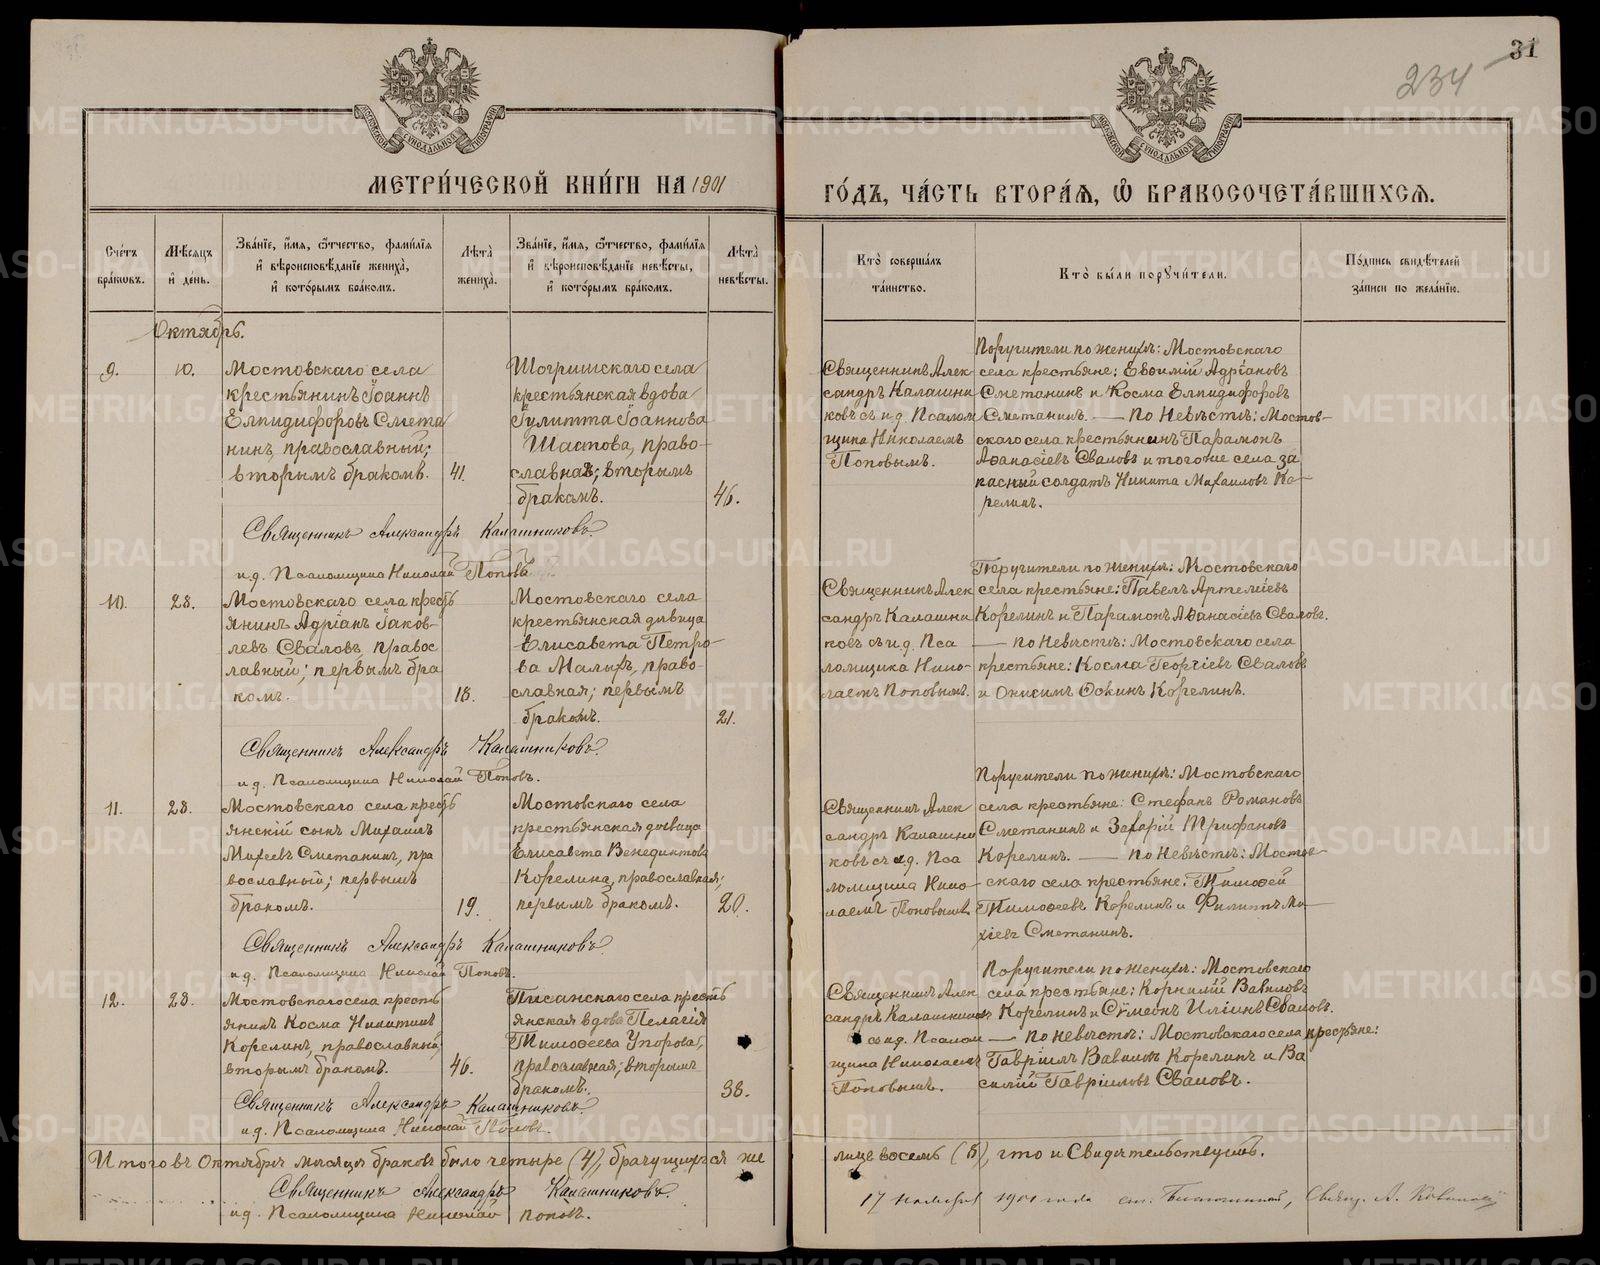 31
234
МОСКОВСКОЙ СѴНОДАЛЬНОЙ ТИПОГРАФІИ
МОСКОВСКОЙ СѴНОДАЛЬНОЙ ТИПОГРАФІИ
МЕТРИ́ЧЕСКОЙ КНИ́ГИ НА 1901
ГО́ДЪ, ЧА́СТЬ ВТОРА́Ѧ, Ѡ҆ БРАКОСОЧЕТА́ВШИХСѦ.
Счéтъ бра́кѡвъ.
Мѣ́сѧцъ и҆ де́нь.
Зва́нїе, и҆́мѧ, ѻ҆́тчество, фами́лїѧ
и҆ вѣроисповѣ́данїе жениха̀,
и҆ кото́рымъ бра́комъ.
Лѣ́та̀ жениха̀.
Зва́нїе, и҆́мѧ, ѻ҆́тчество, фами́лїѧ
и҆ вѣроисповѣ́данїе невѣ́сты,
и҆ кото́рымъ бра́комъ.
Лѣ́та̀ невѣ́сты.
Кто̀ соверша́лъ
та́инство.
Кто̀ бы́ли порꙋчи́тели.
По́дпись свидѣ́телей
за́писи по жела́нїю.
Октябрь.
9.
10.
Мостовскаго села
крестьянинъ Іоаннъ
Елпидифоровъ Смета
нинъ, православный;
вторымъ бракомъ.
41.
Шогришскаго села
крестьянская вдова
Іулитта Іоаннова
Шастова, право-
славная; вторымъ
бракомъ.
46.
Священникъ Алек
сандръ Калашни
ковъ съ и.д. Псалом
щика Николаемъ
Поповымъ.
Поручители по женихѣ: Мостовскаго
села крестьяне: Евѳимій Адріановъ
Сметанинъ и Косма Елпидифоровъ
Сметанинъ. — По Невѣстѣ: Мостов-
скаго села крестьянинъ Парамонъ
Аѳанасіевъ Сваловъ и того же села за
пасный солдатъ Никита Михаиловъ Ко-
релинъ.
Священникъ Александръ Калашниковъ.
и.д. Псаломщика Николай Поповъ.
10.
28.
Мостовскаго села кресть
янинъ Адріанъ Іаков-
левъ Сваловъ, правос
лавный; первымъ бра
комъ.
18.
Мостовскаго села
крестьянская дѣвица
Елисавета Петро-
ва Малыхъ, право-
славная; первымъ
бракомъ.
21.
Священникъ Алек
сандръ Калашни
ковъ съ и.д. Пса
ломщика Нико-
лаемъ Поповымъ.
Поручители по женихѣ: Мостовскаго
села крестьяне: Павелъ Артеміевъ
Корелинъ и Парамонъ Аѳанасіевъ Сваловъ.
— по Невѣстѣ: Мостовскаго села
крестьяне: Косма Георгіевъ Сваловъ
и Онисимъ Оскинъ Корелинъ.
Священникъ Александръ Калашниковъ.
и.д. Псаломщика Николай Поповъ.
11.
28.
Мостовскаго села кресть
янскій сынъ Михаилъ
Михеевъ Сметанинъ, пра
вославный; первымъ
бракомъ.
19.
Мостовскаго села
крестьянская дѣвица
Елисавета Венедиктова
Корелина, православная;
первымъ бракомъ.
20.
Священникъ Алек
сандръ Калашни
ковъ съ и.д. Пса
ломщика Нико
лаемъ Поповымъ
Поручители по женихѣ: Мостовскаго
села крестьяне: Стефанъ Романовъ
Сметанинъ и Захарій Трифановъ
Корелинъ. — по Невѣстѣ: Мостов-
скаго села крестьяне: Тимоѳей
Тимоѳеевъ Корелинъ и Филиппъ Ми-
хіевъ Сметанинъ.
Священникъ Александръ Калашниковъ
и.д. Псаломщика Николай Поповъ.
12.
28.
Мостовскаго села кресть
янинъ Косма Никитинъ
Корелинъ, православный;
вторымъ бракомъ.
46.
Писанскаго села кресть
янская вдова Пелагія
Тимоѳеева Упорова,
православная; вторымъ
бракомъ.
38.
Священникъ Алек
сандръ Калашниковъ
съ и.д. Псалом
щика Николаемъ
Поповымъ.
Поручители по женихѣ: Мостовскаго
села крестьяне: Корнилій Вавиловъ
Корелинъ и Сѵмеонъ Иліинъ Сваловъ.
— по невѣстѣ: Мостовскаго села крестьяне:
Гавріилъ Вавиловъ Корелинъ и Ва
силій Гавріиловъ Сваловъ.
Священникъ Александръ Калашниковъ.
и.д. Псаломщика Николай Поповъ.
Итого въ Октябрѣ мѣсяцѣ браковъ было четыре (4), брачущихся же
лицъ восемь (8), что и Свидѣтельствуемъ.
Священникъ Александръ Калашниковъ.
и.д. Псаломщика Николай Поповъ.
17 ноября 1901 года Свящ. А.
METRIKI.GASO-URAL.RU